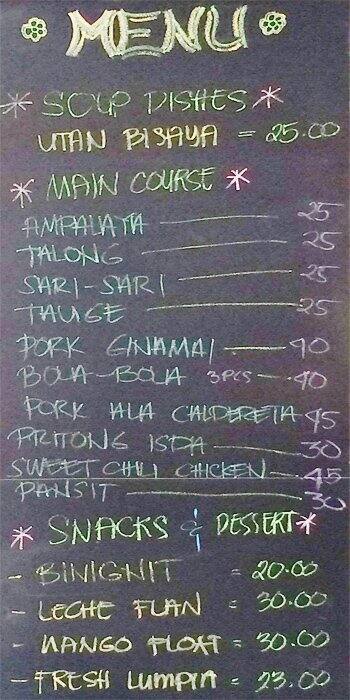 MENU
* SOUP DISHES *
UTAN BISAYA = 25.00
* MAIN COURSE *
AMPALAYA — 25
TALONG — 25
SARI-SARI — 25
TAUGE — 25
PORK GINAMAI — 40
BOLA-BOLA 3PCS — 40
PORK ALA CALDERETA - 45
PRITONG ISDA — 30
SWEET CHILI CHICKEN — 45
PANSIT — 30
* SNACKS & DESSERT *
- BINIGNIT = 20.00
- LECHE FLAN = 30.00
- MANGO FLOAT = 30.00
- FRESH LUMPIA = 23.00